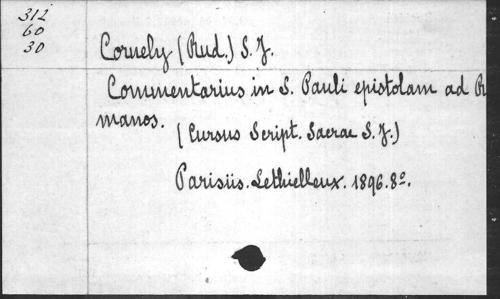 312
60
30
Cornely (Rud.) S. J.
Commentarius in S. Pauli epistolam ad Ro
manos.
(Cursus Script. Sacrae S. J.)
Parisiis. Lethielleux. 1896. 8º.